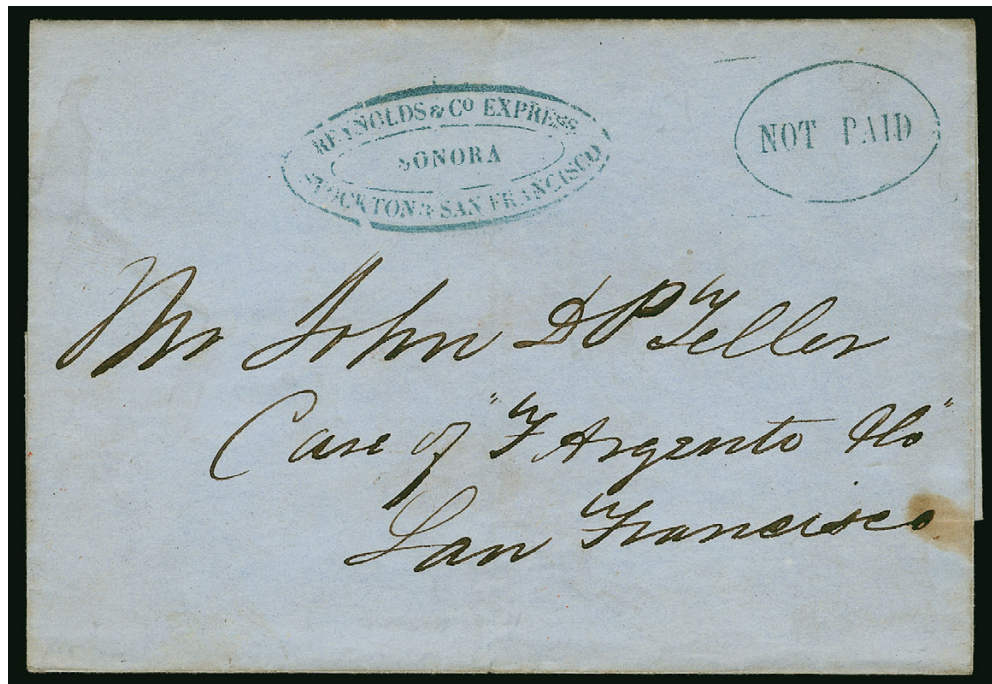 REYNOLDS & Co EXPRESS
SONORA
STOCKTON & SAN FRANCISCO
NOT PAID
Mr John D P Teller
Care of "F Argenti &Co"
San Francisco